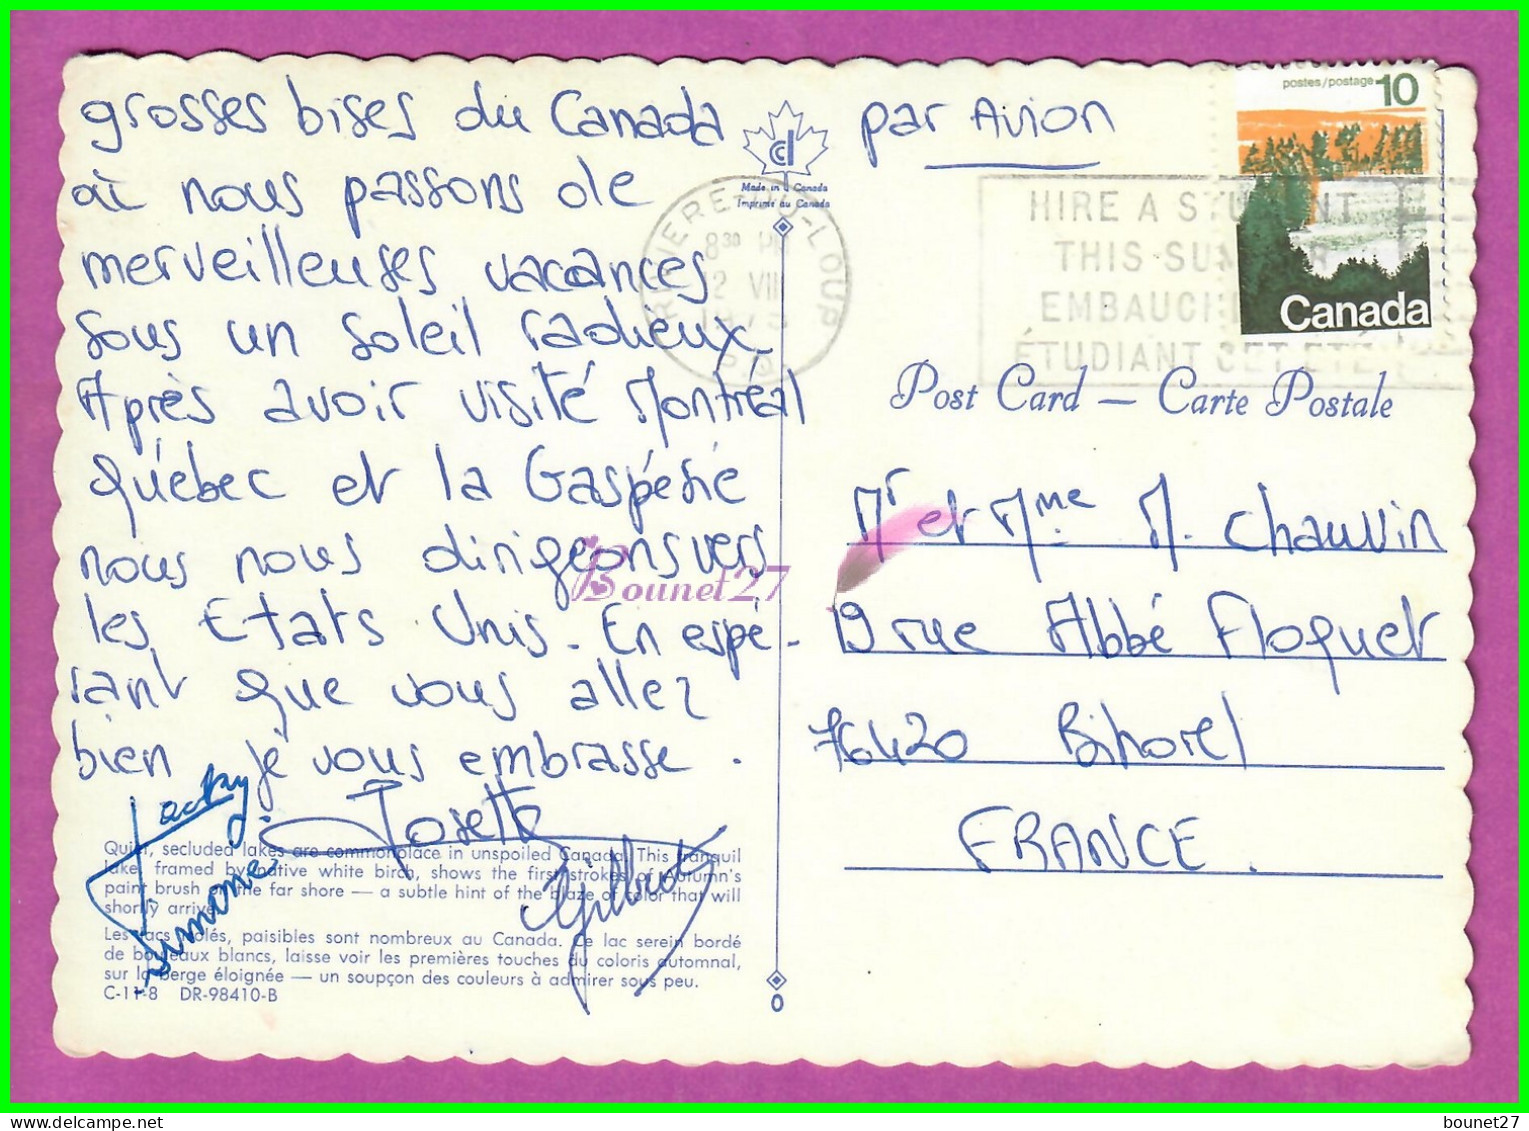 grosses bises du Canada
où nous passons de
merveilleuses vacances
sous un soleil radieux.
Après avoir visité Montréal
Québec et la Gaspésie
nous nous dirigeons vers
les Etats Unis - En espé-
rant que vous allez
bien je vous embrasse.
Jacky
Simone
Josette
Gilbert
Quiet, secluded lakes are commonplace in unspoiled Canada. This tranquil
lake, framed by native white birch, shows the first strokes of Autumn's
paint brush on the far shore — a subtle hint of the blaze of color that will
shortly arrive.
Les lacs isolés, paisibles sont nombreux au Canada. Ce lac serein bordé
de bouleaux blancs, laisse voir les premières touches du coloris automnal,
sur la berge éloignée — un soupçon des couleurs à admirer sous peu.
C-11-8 DR-98410-B
Made in Canada
Imprimé au Canada
RIVIERE-DU-LOUP
830 PM
12 VIII
1975
P.Q.
par Avion
HIRE A STUDENT
THIS SUMMER
EMBAUCHEZ
ÉTUDIANT CET ÉTÉ
postes/postage 10
Canada
Post Card — Carte Postale
Mr et Mme M. Chauvin
19 rue Abbé Floquet
76420 Bihorel
FRANCE.
Bounet27
bounet27